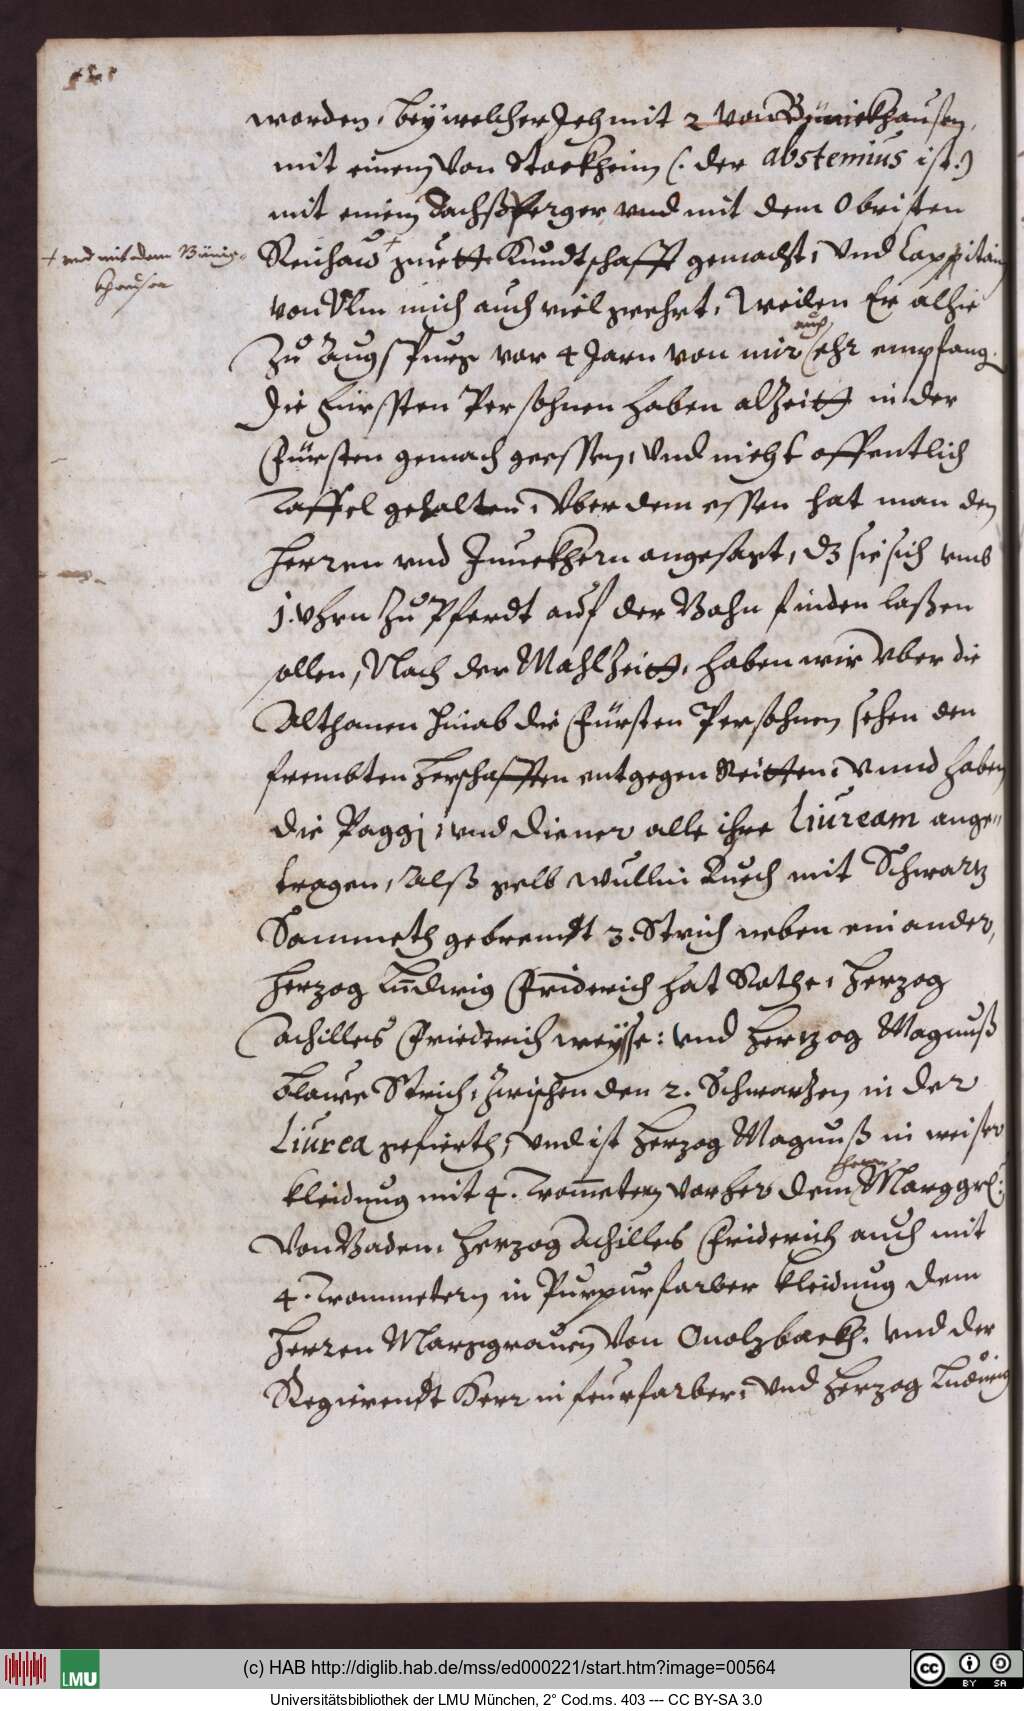 worden, bey welcher Ich mit 2 von Bünickhausen,
mit einem von Stockheim (: der abstemius ist :)
mit einem Dachßperger vnd mit dem Obristen
+ vnd mit dem Bünig-
hausen
Reichaw + guette Kundtschafft gemacht, Vnd Cappitain
von Vlm mich auch viel geehrt, Weilen Er alhie
Zu Augspurg vor 4 Jarn von mir auch ehr empfang.
Die Fürsten Persohnen haben alZeitt in der
Fürsten gemach geessen, Vnd nicht offentlich
Taffel gehalten, Vber dem essen hat man den
Herren vnd Junckhern angesagt, dz sie sich vmb
1. Vhrn Zu Pferdt auf der Bahn finden laßen
sollen, Nach der MahlZeitt, haben wir Vber die
Althanen hinab die Fürsten Persohnen sehen den
frembten Herschafften entgegen Reitten, Vnnd haben
die Paggj, vnd diener alle ihre Liuream ange"
tragen, Alß gelb wullin Tuech mit Schwartz
Sammeth gebremdt 3. Strich neben ein ander,
Herzog Ludwig Friderich hat Rothe, Herzog
Achilles Friederich weysse: vnd Hertzog Magnuß
blawe Strich, Zwischen den 2. Schwarzen in der
Liurea gefierth, Vnd ist Herzog Magnuß in weiser
kleidung mit 4. Trometern Vorher dem Herrn Marggrf:
Von Baden, Herzog Achilles Friderich auch mit
4. Trommetern in Purpurfarber kleidung dem
Herren Marggrauen Von Onolzbackh, Vnd der
Regierendt Herr in feurfarber, Vnd Herzog Ludwig
(c) HAB http://diglib.hab.de/mss/ed000221/start.htm?image=00564
LMU
cc BY SA
Universitätsbibliothek der LMU München, 2° Cod.ms. 403 --- CC BY-SA 3.0